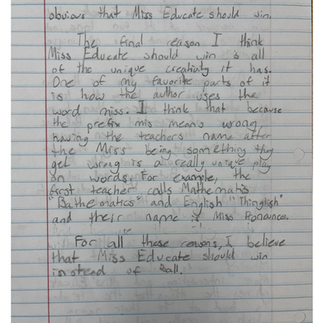 obvious that Miss Educate should win.
The final reason I think
Miss Educate should win is all
of the unique creativity it has.
One of my favorite parts of it
is how the author uses the
word miss. I think that because
the prefix mis means wrong,
having the teachers name after
the Miss being something they
get wrong is a really unique play
on words. For example, the
first teacher calls Mathematis
"Bathematics" and English "Thinglish"
and their name is Miss Pronounce.
For all these reasons, I believe
that Miss Educate should win
instead of Ball.